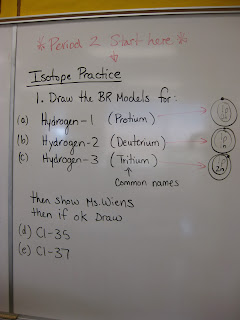 * Period 2 Start here *
Isotope Practice
1. Draw the BR Models for:
(a) Hydrogen-1 (Protium)
(b) Hydrogen-2 (Deuterium)
(c) Hydrogen-3 (Tritium)
Common names
then show Ms. Wiens
then if ok Draw
(d) Cl-35
(e) Cl-37